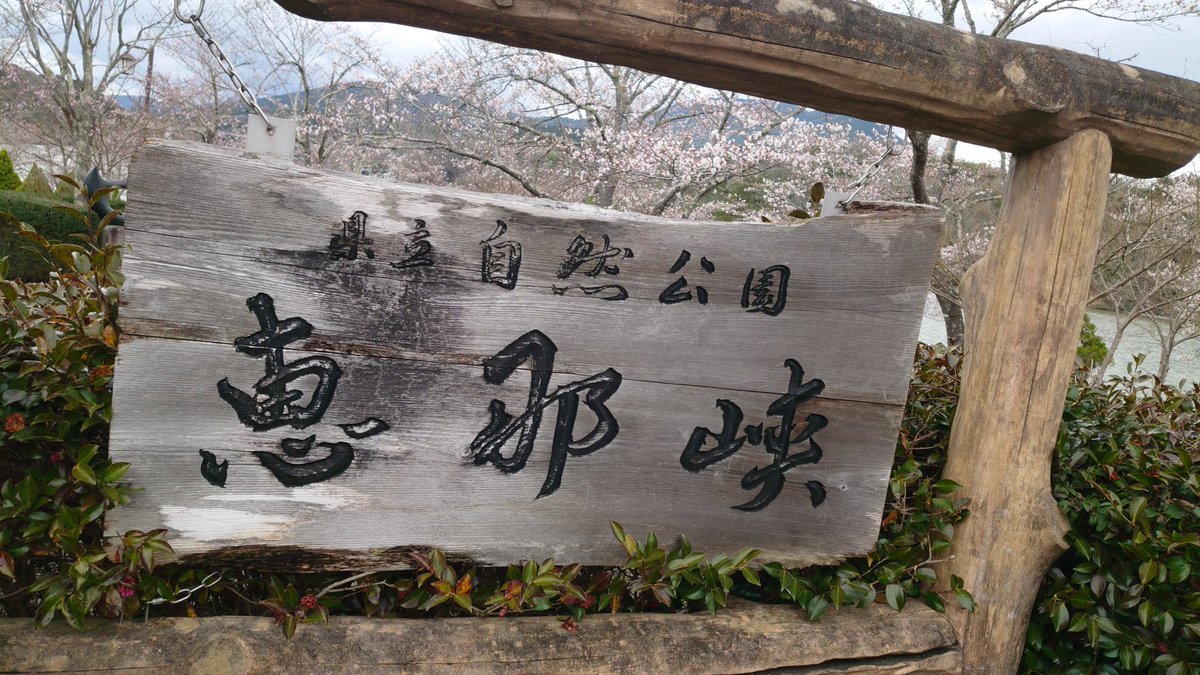 県立自然公園
恵那峡